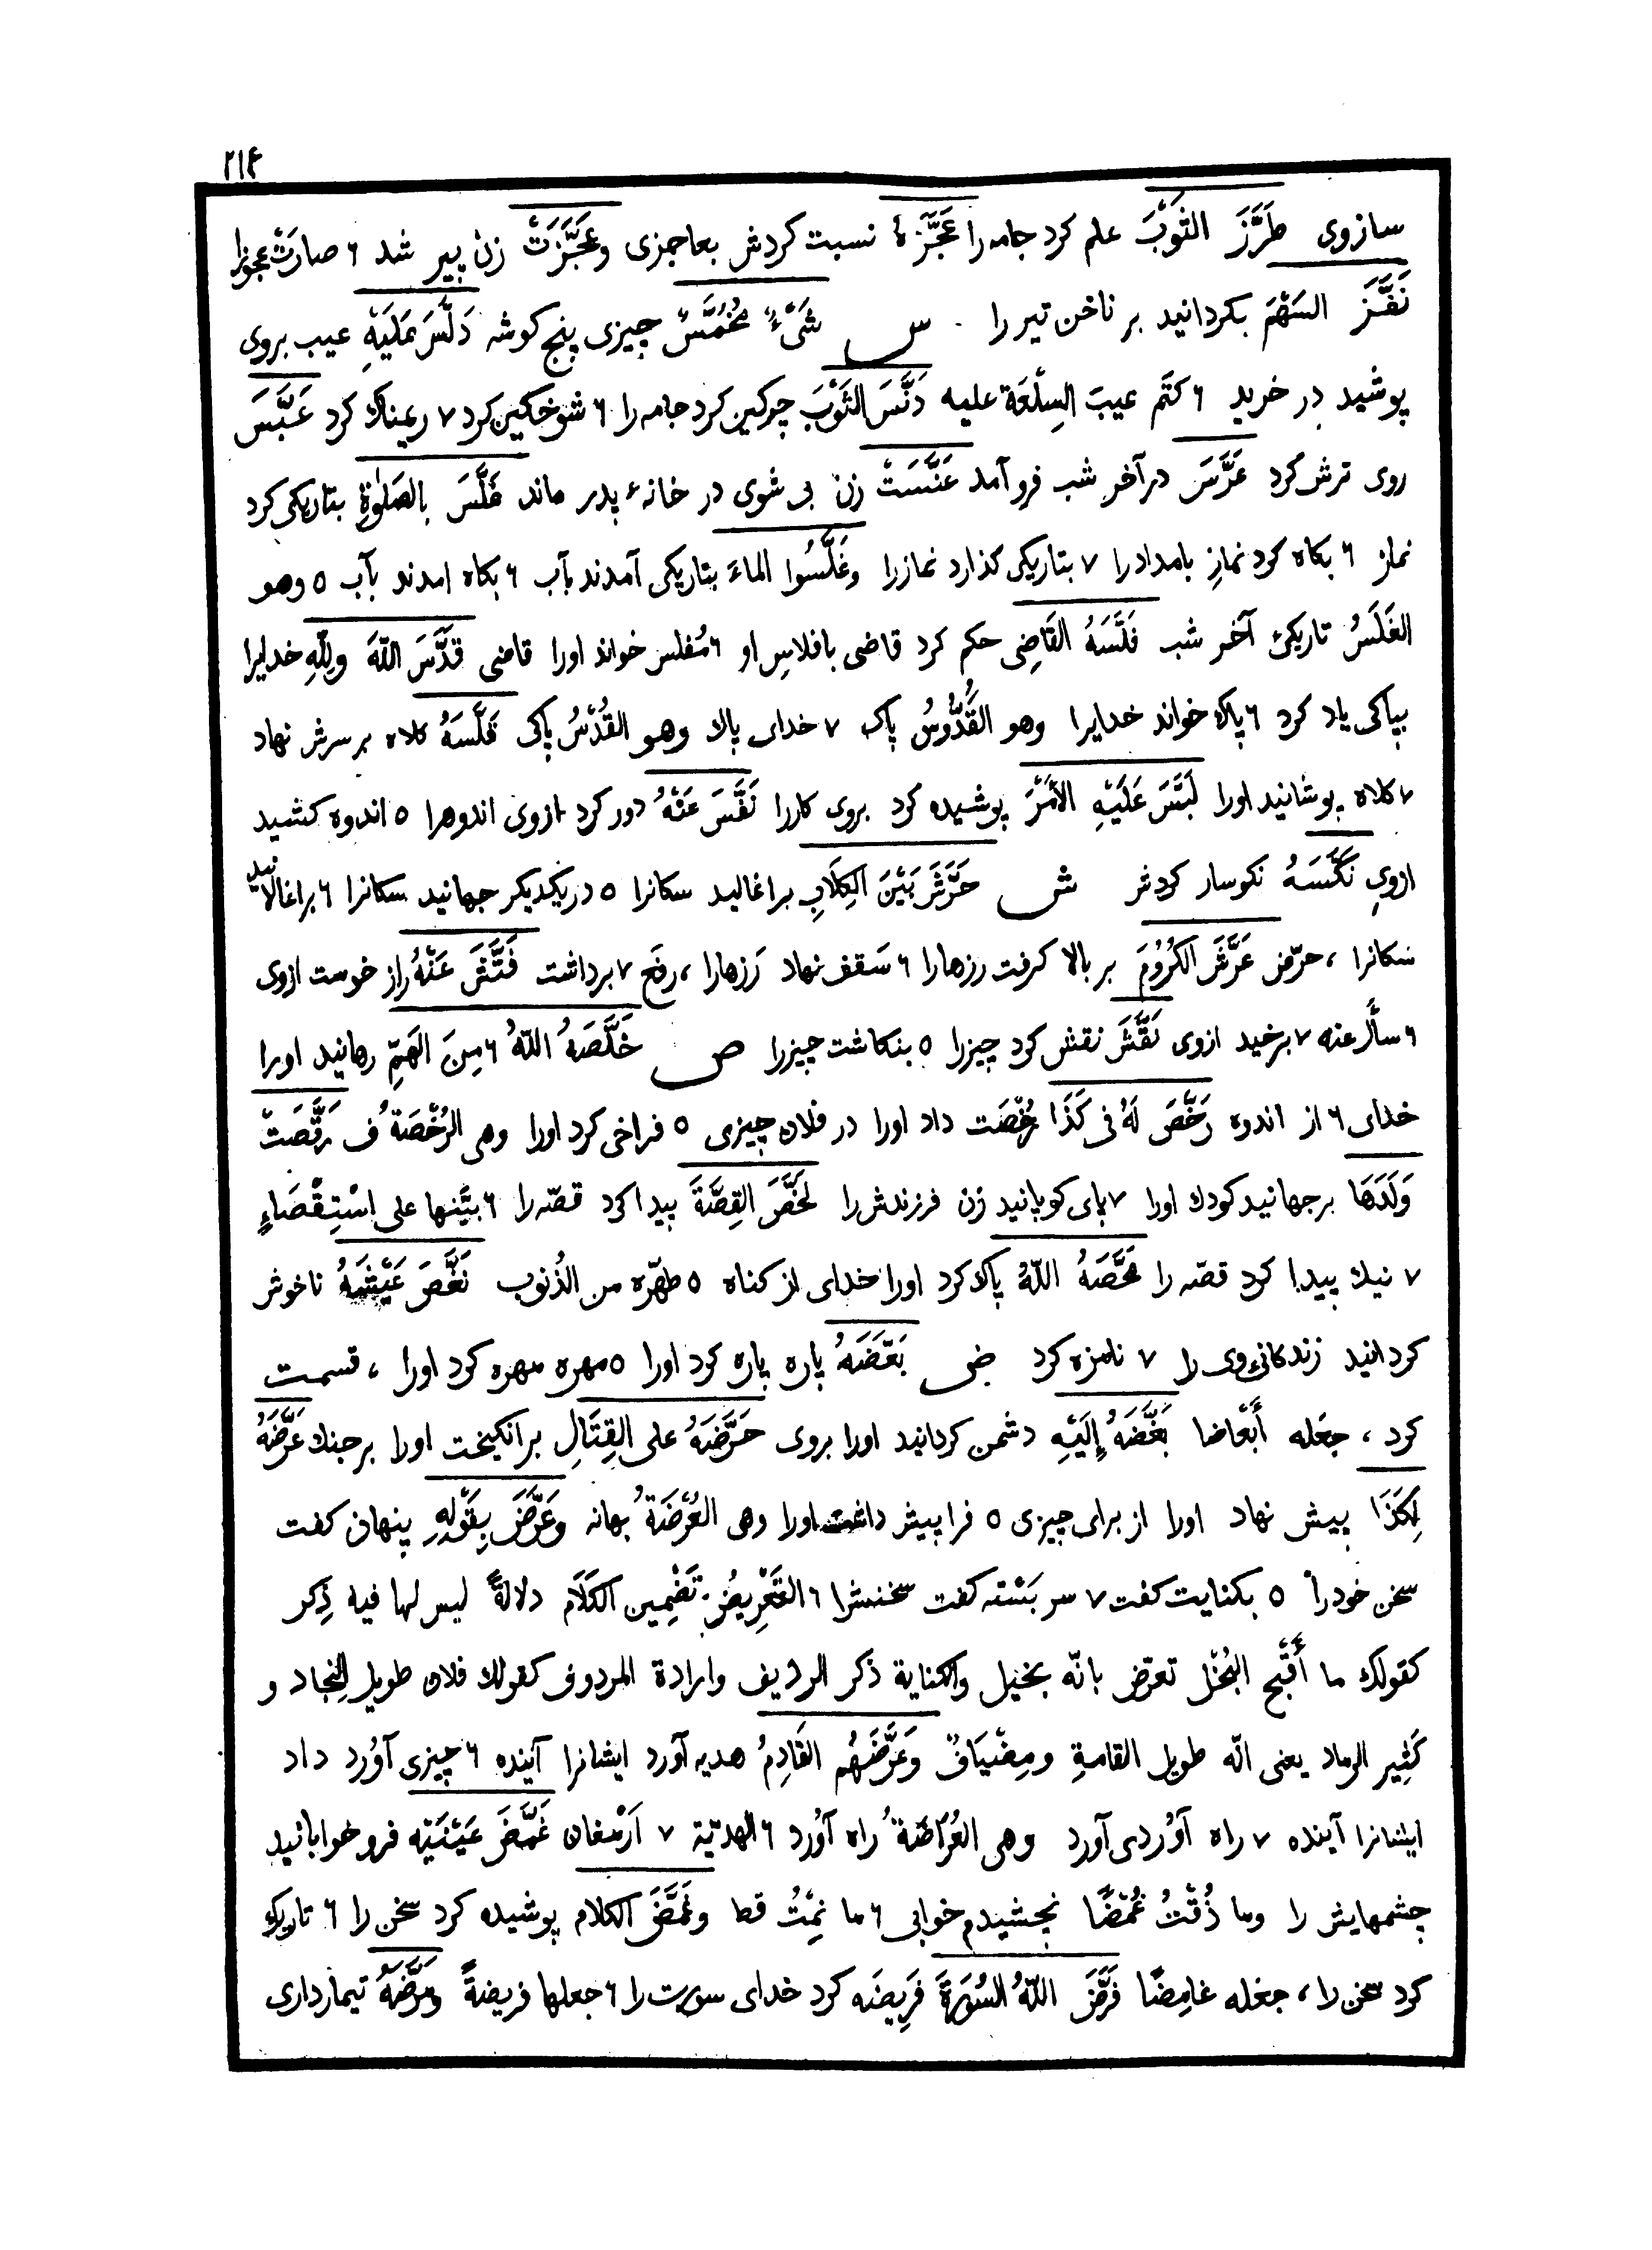 ۲۱۴
سازوی طَرَّزَ الثَوْبَ علم کرد جامه را عَجَّزَهُ نسبت کردش بعاجزی وعَجَّزَتْ زن پیر شد ۶ صارت عجوزا
نَفَّزَ السَهْمَ بکردانید بر ناخن تیر را س شَیْءٌ مُخَمَّسٌ چیزی پنج کوشه دَلَّسَ عَلَیْهِ عیب بروی
پوشید در خرید ۶ کتَم عیبَ السِلْعَة علیه دَنَّسَ الثَوْبَ چرکین کرد جامه را ۶ شوخکین کرد ۷ ریمناك کرد عَبَّسَ
روی ترش کرد عَرَّسَ در آخر شب فرو آمد عَنَّسَتْ زن بی شوی در خانهٔ پدر ماند غَلَّسَ بالصَلٰوةِ بتاریکی کرد
نماز ۶ بکاه کرد نمازِ بامداد را ۷ بتاریکی کذارد نماز را وغَلَّسُوا الماءَ بتاریکی آمدند بآب ۶ بکاه امدند بآب ۵ وهو
الغَلَسُ تاریکئ آخر شب فَلَّسَهُ القَاضِی حکم کرد قاضی بافلاسِ او ۶ مُفلس خواند اورا قاضی قَدَّسَ اللّٰهَ وللّٰهِ خدایرا
بپاکی یاد کرد ۶ پاك خواند خدایرا وهو القُدُّوسُ پاک ۷ خدای پاک وهو القُدْسُ پاکی قَلَّسَهُ کلاه بر سرش نهاد
۷ کلاه پوشانید اورا لَبَّسَ عَلَیْهِ الأَمْرَ پوشیده کرد بروی کاررا نَفَّسَ عَنْهُ دور کرد ازوی اندوهرا ۵ اندوه کشید
ازوی نَکَّسَهُ نکوسار کردش ش حَرَّشَ بَیْنَ الکِلَابِ براغالید سکانرا ۵ دریکدیکر جهانید سکانرا ۶ براغالانید
سکانرا ، حرّض عَرَّشَ الکُرُومَ بر بالا کرفت رزهارا ۶ سَقف نهاد رَزهارا ، رفع ۷ برداشت فَتَّشَ عَنْهُ راز خوست ازوی
۶ سأل عنه ۷ برخید ازوی نَقَّشَ نقش کرد چیزرا ۵ بنکاشت چیزرا ص خَلَّصَهُ اللّٰهُ ۶ مِنَ الهَمِّ رهانید اورا
خدای ۶ از اندوه رَخَّصَ لَهُ فی کَذَا رُخْصَت داد اورا در فلان چیزی ۵ فراخی کرد اورا وهی الرُخْصَةُ ف رَقَّصَتْ
وَلَدَهَا برجهانید کودك اورا ۷ پای کوپانید زن فرزندش را لَخَّصَ القِصَّةَ پیدا کرد قصّه را ۶ بیّنها علی اسْتِقْصَاءٍ
۷ نیك پیدا کرد قصّه را مَحَّصَهُ اللّٰهُ پاك کرد اورا خدای از کناه ۵ طهّره من الذُنوب نَغَّصَ عَیْشَهُ ناخوش
کردانید زندکانئ وی را ۷ نامزه کرد ض بَعَّضَهُ پاره پاره کرد اورا ۵ مهره مهره کرد اورا ، قسمت
کرد ، جعَله أَبْعَاضا بَغَّضَهُ إِلَیْهِ دشمن کردانید اورا بروی حَرَّضَهُ علی القِتَالِ برانکیخت اورا بر جنك عَرَّضَهُ
لِکَذَا پیش نهاد اورا از برای چیزی ۵ فرا پیش داشت اورا وهی العُرْضَةُ بهانه وعَرَّضَ بِقَوْلِهِ پنهان کفت
سخن خودرا ۵ بکنایت کفت ۷ سر بَسْته کفت سخنش را ۶ التَعْرِیضُ تَضْمِین الکَلَام دلالةً لیس لها فیه ذِکر
کقولك ما أَقْبَحَ البُخْل تعرّض بانّه بخیل والکنایة ذکر الردیف وارادة المردوف کقولك فلان طویل النِجاد و
کَثِیر الرماد یعنی انّه طویل القامةِ ومِضْیَافٌ وَعَرَّضَهُم القَادِمُ هدیه آورد ایشانرا آینده ۶ چیزی آوُرد داد
ایشانرا آینده ۷ راه آوُردی آورد وهی العُرَاضَةُ راه آوُرد ۶ الهدیّة ۷ اَرْمغان غَمَّضَ عَیْنَیْه فرو خوابانید
چشمهایش را وما ذُقْتُ غُمْضًا نچشیدم خوابی ۶ ما نِمْتُ قط وغَمَّضَ الکلام پوشیده کرد سخن را ۶ تاریك
کرد سخن را ، جعَله غامِضًا فَرَّضَ اللّٰهُ السُورَةَ فَرِیضَه کرد خدای سورت را ۶ جعلها فریضةً ومَرَّضَهُ تیمارداری